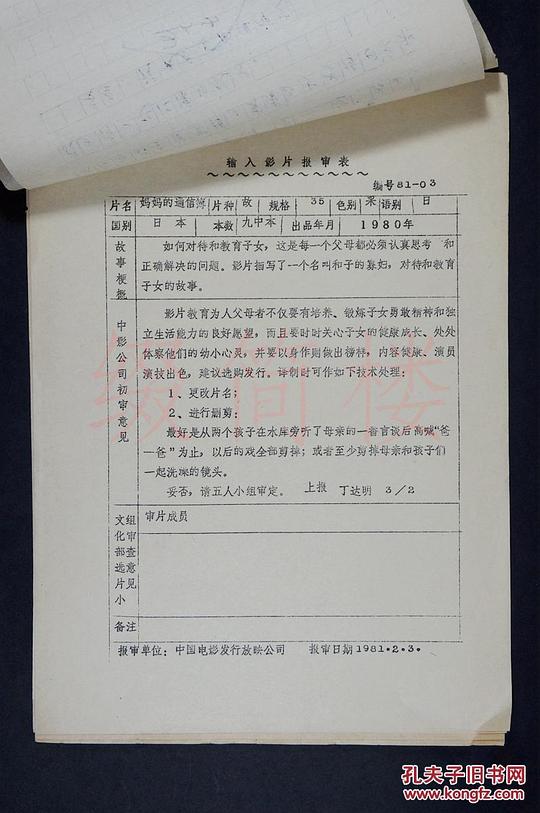 输入影片报审表
编号81-03
片名 妈妈的通信簿 片种 故 规格 35 色别 彩 语别 日
国别 日本 本数 九中本 出品年月 1980年
故事梗概
如何对待和教育子女，这是每一个父母都必须认真思考 和
正确解决的问题。影片描写了一个名叫和子的寡妇，对待和教育
子女的故事。
中影公司初审意见
影片教育为人父母者不仅要有培养、锻炼子女勇敢精神和独
立生活能力的良好愿望，而且要时时关心子女的健康成长、处处
体察他们的幼小心灵，并要以身作则做出榜样，内容健康、演员
演技出色，建议选购发行。译制时可作如下技术处理：
1、更改片名；
2、进行删剪：
最好是从两个孩子在水库旁听了母亲的一番言谈后高喊“爸
—爸”为止，以后的戏全部剪掉；或者至少剪掉母亲和孩子们
一起洗澡的镜头。
妥否，请五人小组审定。 上报 丁达明 3/2
文化部选片小组审查意见
审片成员
备注
报审单位：中国电影发行放映公司 报审日期1981·2·3·
缀简楼
孔夫子旧书网
www.kongfz.com